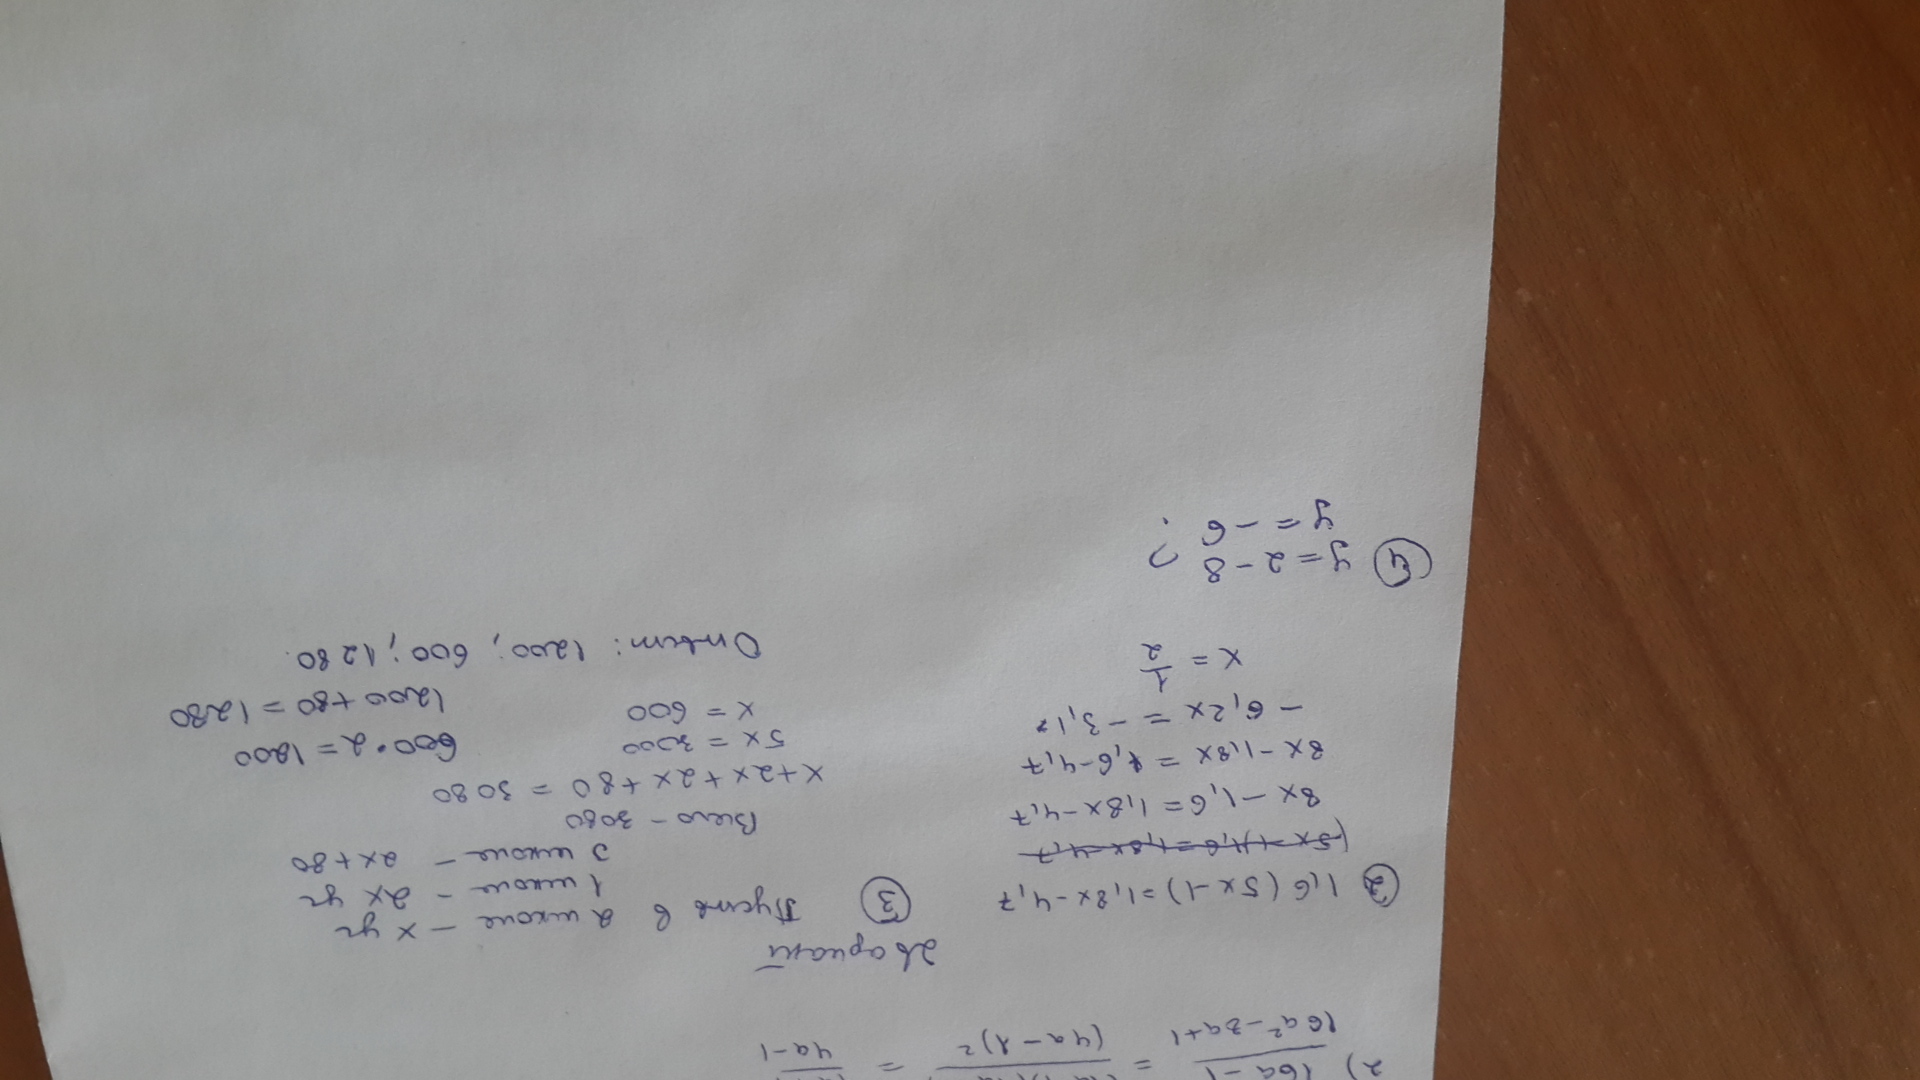 2) 16a²-1 / 16a²-8a+1 = / (4a-1)² = / 4a-1
2 вариант
② 1,6(5x-1)=1,8x-4,7
(5x-1)1,6=1,8x-4,7
8x-1,6=1,8x-4,7
8x-1,8x=1,6-4,7
-6,2x=-3,1
x=1/2
③ Пусть в 2 школе - x уч
1 школе - 2x уч
3 школе - 2x+80
Всего - 3080
x+2x+2x+80=3080
5x=3000 600·2=1200
x=600 1200+80=1280
Ответ: 1200; 600; 1280.
④ y=2-8 ?
y=-6